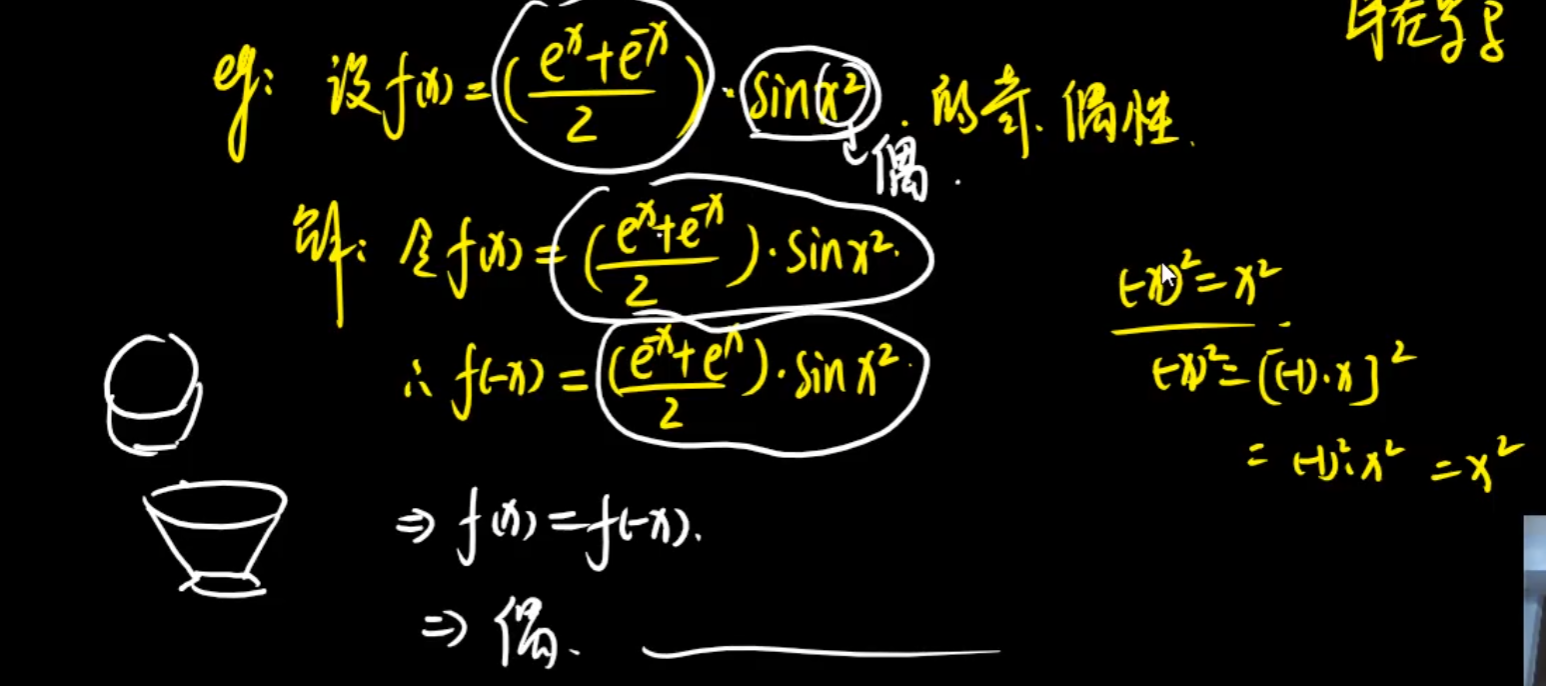 eg: 设 f(x) = (\frac{e^x+e^{-x}}{2}) · sin(x²). 的奇、偶性.
↳偶.
解: 令 f(x) = (\frac{e^x+e^{-x}}{2}) · sin x².
∴ f(-x) = (\frac{e^{-x}+e^x}{2}) · sin x².
⇒ f(x) = f(-x).
⇒ 偶.
(-x)² = x²
(-x)² = [(-1)·x]²
= (-1)²·x² = x²